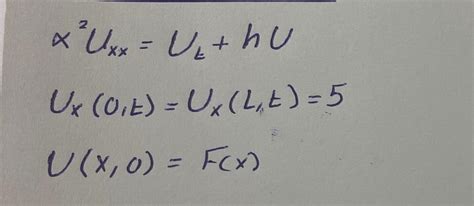 α²Uₓₓ = Uₜ + hU
Uₓ(0,t) = Uₓ(L,t) = 5
U(x,0) = F(x)